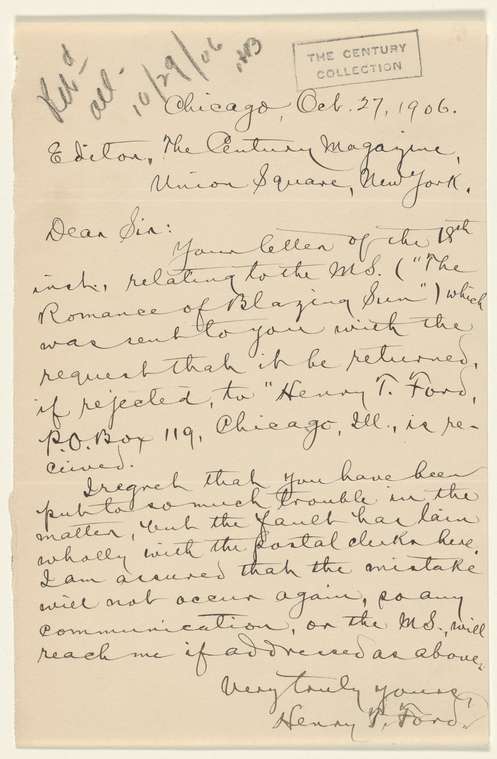 Rec'd
ack.
10/29/06
THE CENTURY
COLLECTION
Chicago, Oct. 27, 1906.
Editor, The Century Magazine,
Union Square, New York.
Dear Sir:
Your letter of the 18th
inst., relating to the MS. ("The
Romance of Blazing Sun") which
was sent to you with the
request that it be returned,
if rejected, to "Henry T. Ford,
P.O. Box 119, Chicago, Ill., is re-
ceived.
I regret that you have been
put to so much trouble in the
matter, but the fault has lain
wholly with the postal clerks here.
I am assured that the mistake
will not occur again, so any
communication, or the MS., will
reach me if addressed as above.
Very truly yours,
Henry T. Ford.